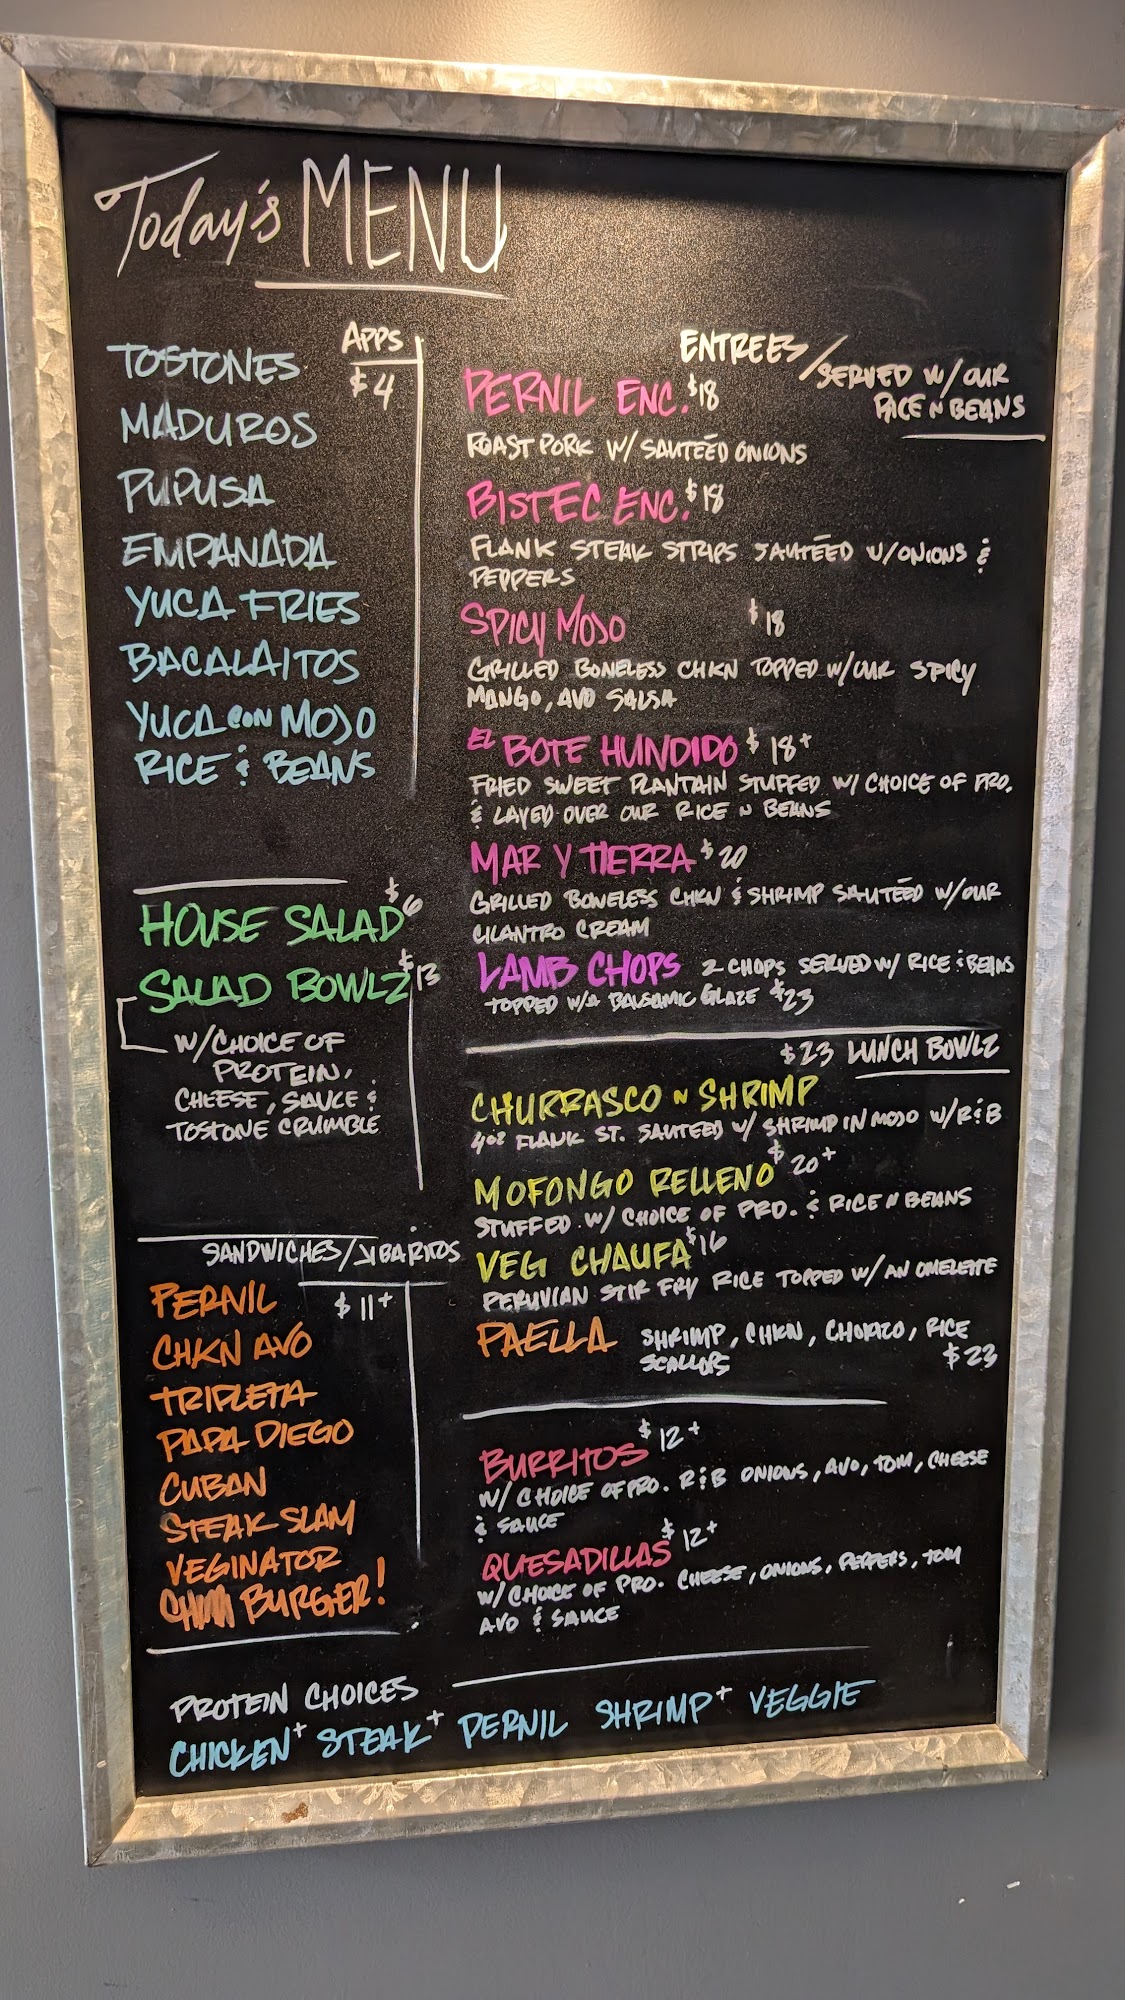 Today's MENU
APPS
$4
TOSTONES
MADUROS
PUPUSA
EMPANADA
YUCA FRIES
BACALAITOS
YUCA CON MOJO
RICE & BEANS
HOUSE SALAD $6
SALAD BOWLZ $13
W/CHOICE OF
PROTEIN,
CHEESE, SAUCE &
TOSTONE CRUMBLE
SANDWICHES/JIBARITOS
$11+
PERNIL
CHKN AVO
TRIPLETA
PAPA DIEGO
CUBAN
STEAK SLAM
VEGINATOR
BURGER!
ENTREES/SERVED W/OUR
RICE N BEANS
PERNIL ENC. $18
ROAST PORK W/ SAUTEÉD ONIONS
BISTEC ENC. $18
FLANK STEAK STRIPS SAUTEÉD W/ONIONS &
PEPPERS
SPICY MOJO $18
GRILLED BONELESS CHKN TOPPED W/OUR SPICY
MANGO, AVO SALSA
EL BOTE HUNDIDO $18+
FRIED SWEET PLANTAIN STUFFED W/ CHOICE OF PRO.
& LAYED OVER OUR RICE N BEANS
MAR Y TIERRA $20
GRILLED BONELESS CHKN & SHRIMP SAUTEÉD W/OUR
CILANTRO CREAM
LAMB CHOPS 2 CHOPS SERVED W/ RICE & BEANS
TOPPED W/A BALSAMIC GLAZE $23
$23 LUNCH BOWLZ
CHURRASCO N SHRIMP
4OZ FLANK ST. SAUTEED W/ SHRIMP IN MOJO W/R&B
MOFONGO RELLENO $20+
STUFFED W/ CHOICE OF PRO. & RICE N BEANS
VEG CHAUFA $16
PERUVIAN STIR FRY RICE TOPPED W/AN OMELETTE
PAELLA SHRIMP, CHKN, CHORIZO, RICE
SCALLOPS $23
BURRITOS $12+
W/ CHOICE OF PRO. R&B ONIONS, AVO, TOM, CHEESE
& SAUCE
QUESADILLAS $12+
W/CHOICE OF PRO. CHEESE, ONIONS, PEPPERS, TOM
AVO & SAUCE
PROTEIN CHOICES
CHICKEN+ STEAK+ PERNIL SHRIMP+ VEGGIE